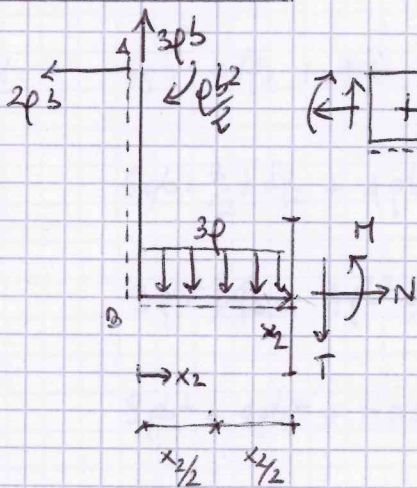 3pb
2pb
pb²/2
3p
M
N
B
x₂
T
x₂
x₂/2 x₂/2